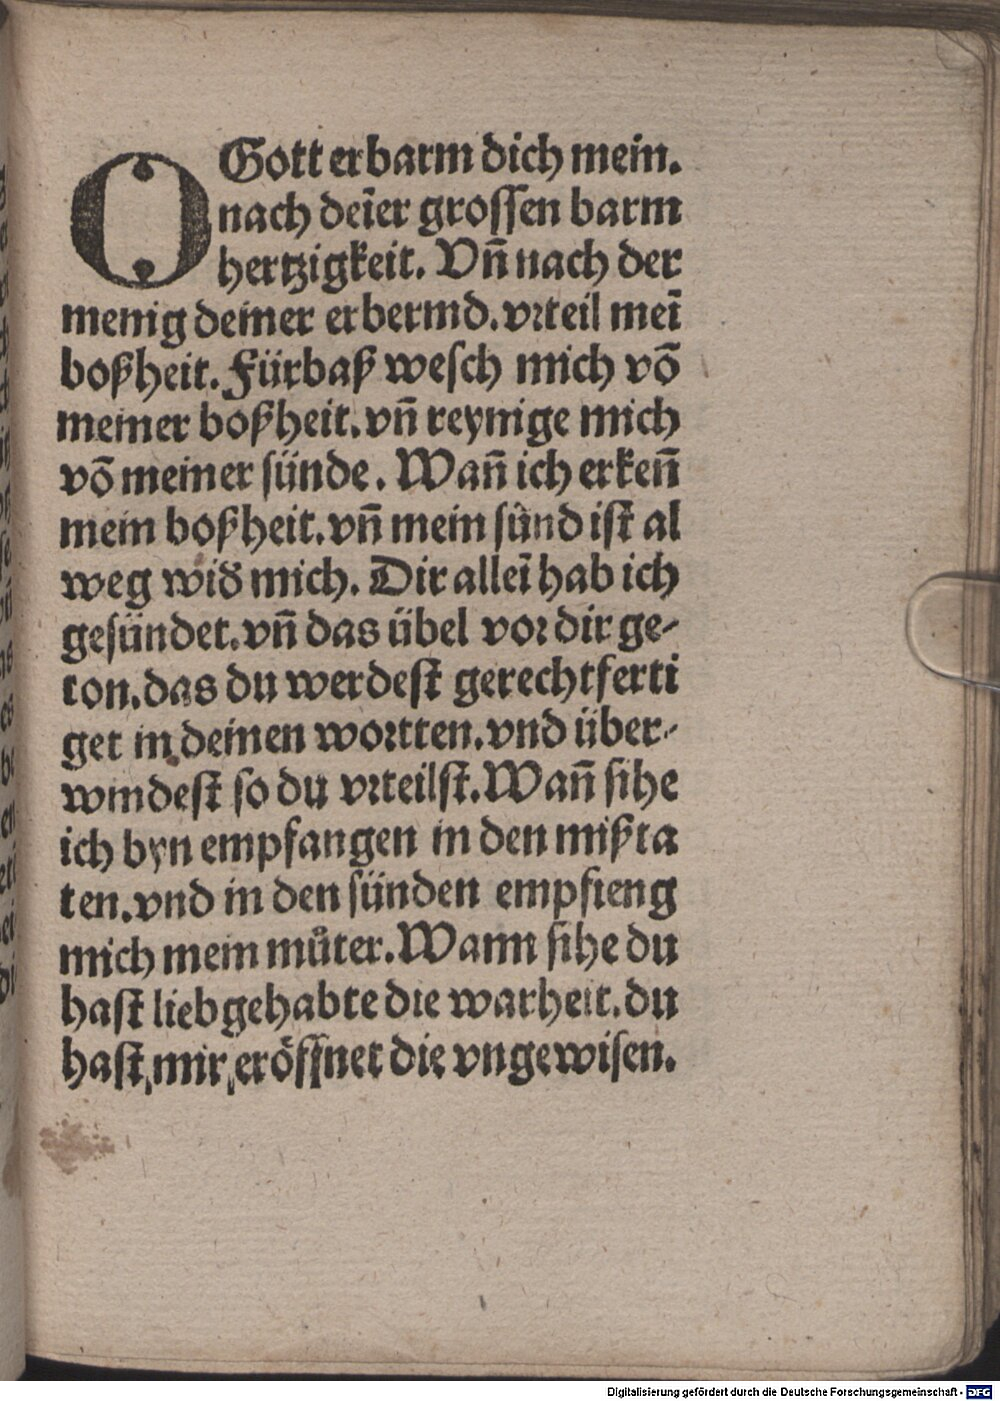 O Gott erbarm dich mein.
nach deīer grossen barm
hertzigkeit. Vn̄ nach der
menig deiner erbermd. vrteil meī
boßheit. Fürbaß wesch mich vō
meiner boßheit. vn̄ reynige mich
vō meiner sünde. Wan̄ ich erken̄
mein boßheit. vn̄ mein sünd ist al
weg wið mich. Dir alleī hab ich
gesündet. vn̄ das übel vor dir ge-
ton. das du werdest gerechtferti
get in deinen wortten. vnd über-
windest so du vrteilst. Wan̄ sihe
ich byn empfangen in den mißta
ten. vnd in den sünden empfieng
mich mein můter. Wann sihe du
hast lieb gehabte die warheit. du
hast mir eröffnet die vngewisen.
Digitalisierung gefördert durch die Deutsche Forschungsgemeinschaft - DFG